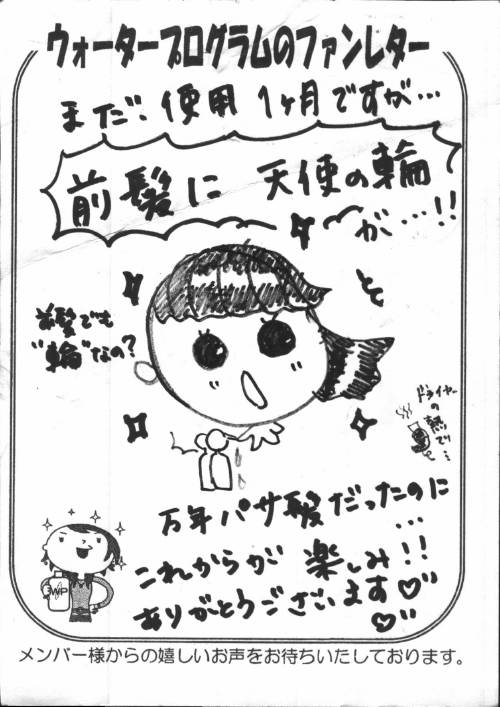 ウォータープログラムのファンレター
まだ、使用 1ヶ月ですが…
前髪に 天使の輪
が…!!
と
前髪でも
"輪"なの?
ドライヤー
の
熱で…
万年 パサ髪だったのに
…
これからが 楽しみ!!
ありがとうございます♡
♡
WP
メンバー様からの嬉しいお声をお待ちいたしております。